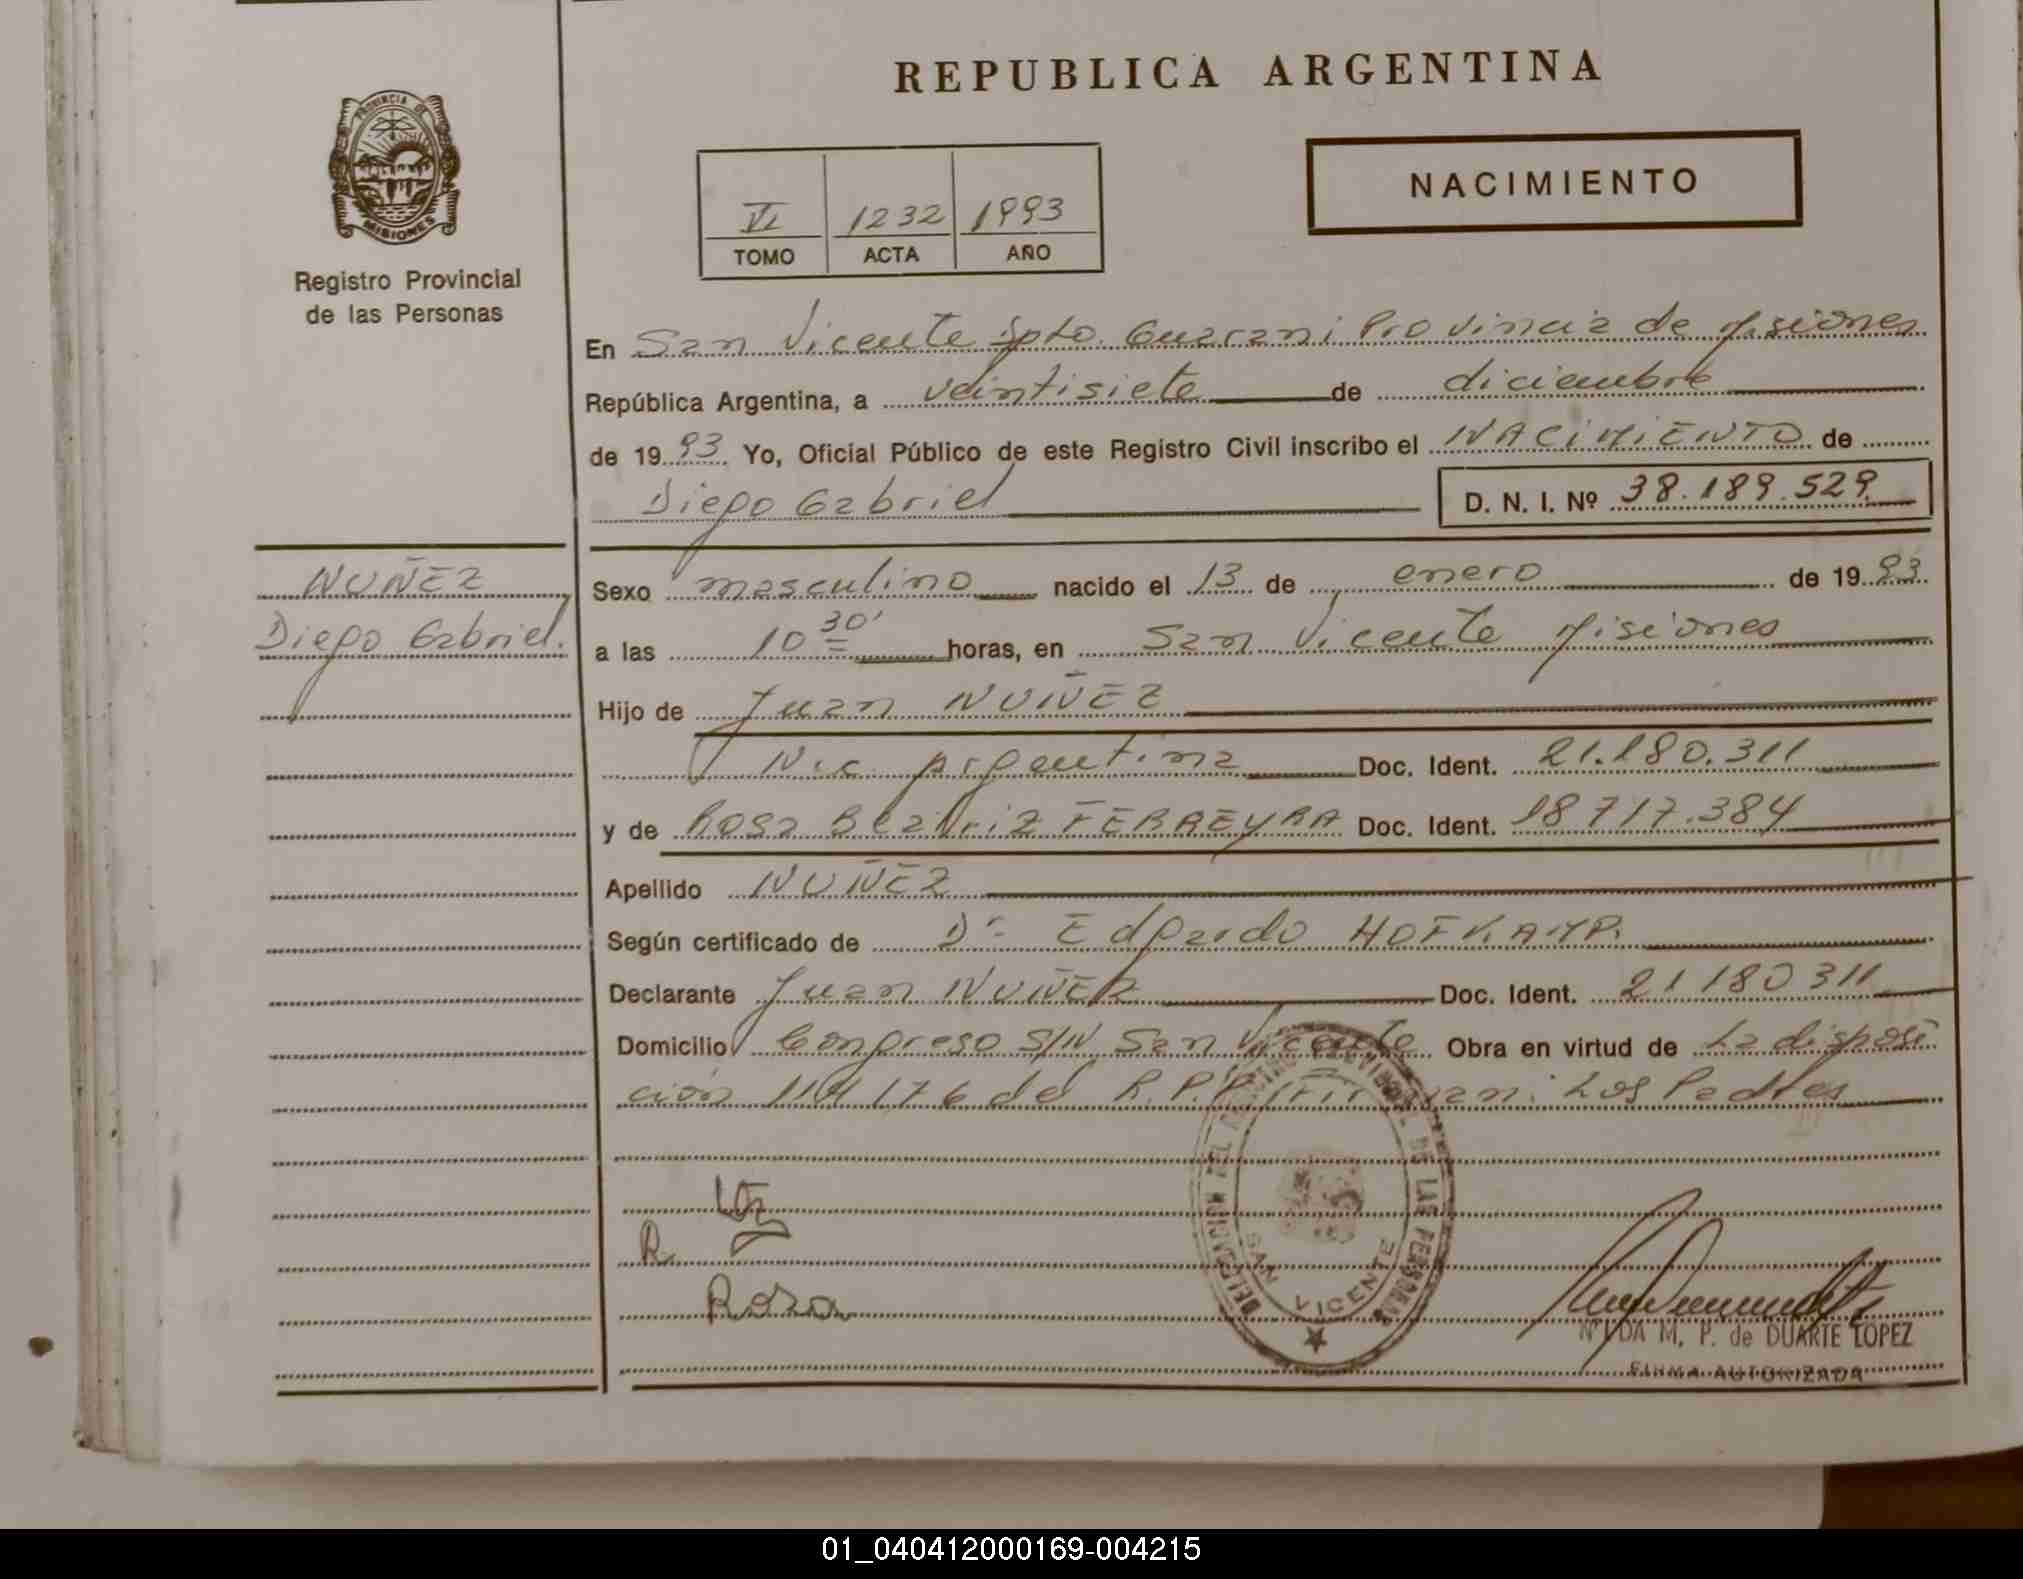 REPUBLICA ARGENTINA
PROVINCIA DE MISIONES
Registro Provincial
de las Personas
VI 1232 1993
TOMO ACTA AÑO
NACIMIENTO
En San Vicente Dpto. Guarani Provincia de Misiones
República Argentina, a veintisiete de diciembre
de 1993 Yo, Oficial Público de este Registro Civil inscribo el NACIMIENTO de
Diego Gabriel D. N. I. Nº 38.189.529
NUÑEZ
Diego Gabriel.
Sexo masculino nacido el 13 de enero de 1993
a las 10 30' horas, en San Vicente Misiones
Hijo de Juan NUÑEZ
Nac. Argentina Doc. Ident. 21.180.311
y de Rosa Beatriz FERREYRA Doc. Ident. 18717.384
Apellido NUÑEZ
Según certificado de Dr. Edgardo HOFKAMP.
Declarante Juan NUÑEZ Doc. Ident. 21180311
Domicilio Congreso S/N San Vicente Obra en virtud de La disposi
ción 114/76 del R.P.P. Los Padres
R.
Rosa
DELEGACION DEL REGISTRO PROVINCIAL DE LAS PERSONAS
SAN VICENTE
M. P. de DUARTE LOPEZ
FIRMA AUTORIZADA
01_040412000169-004215